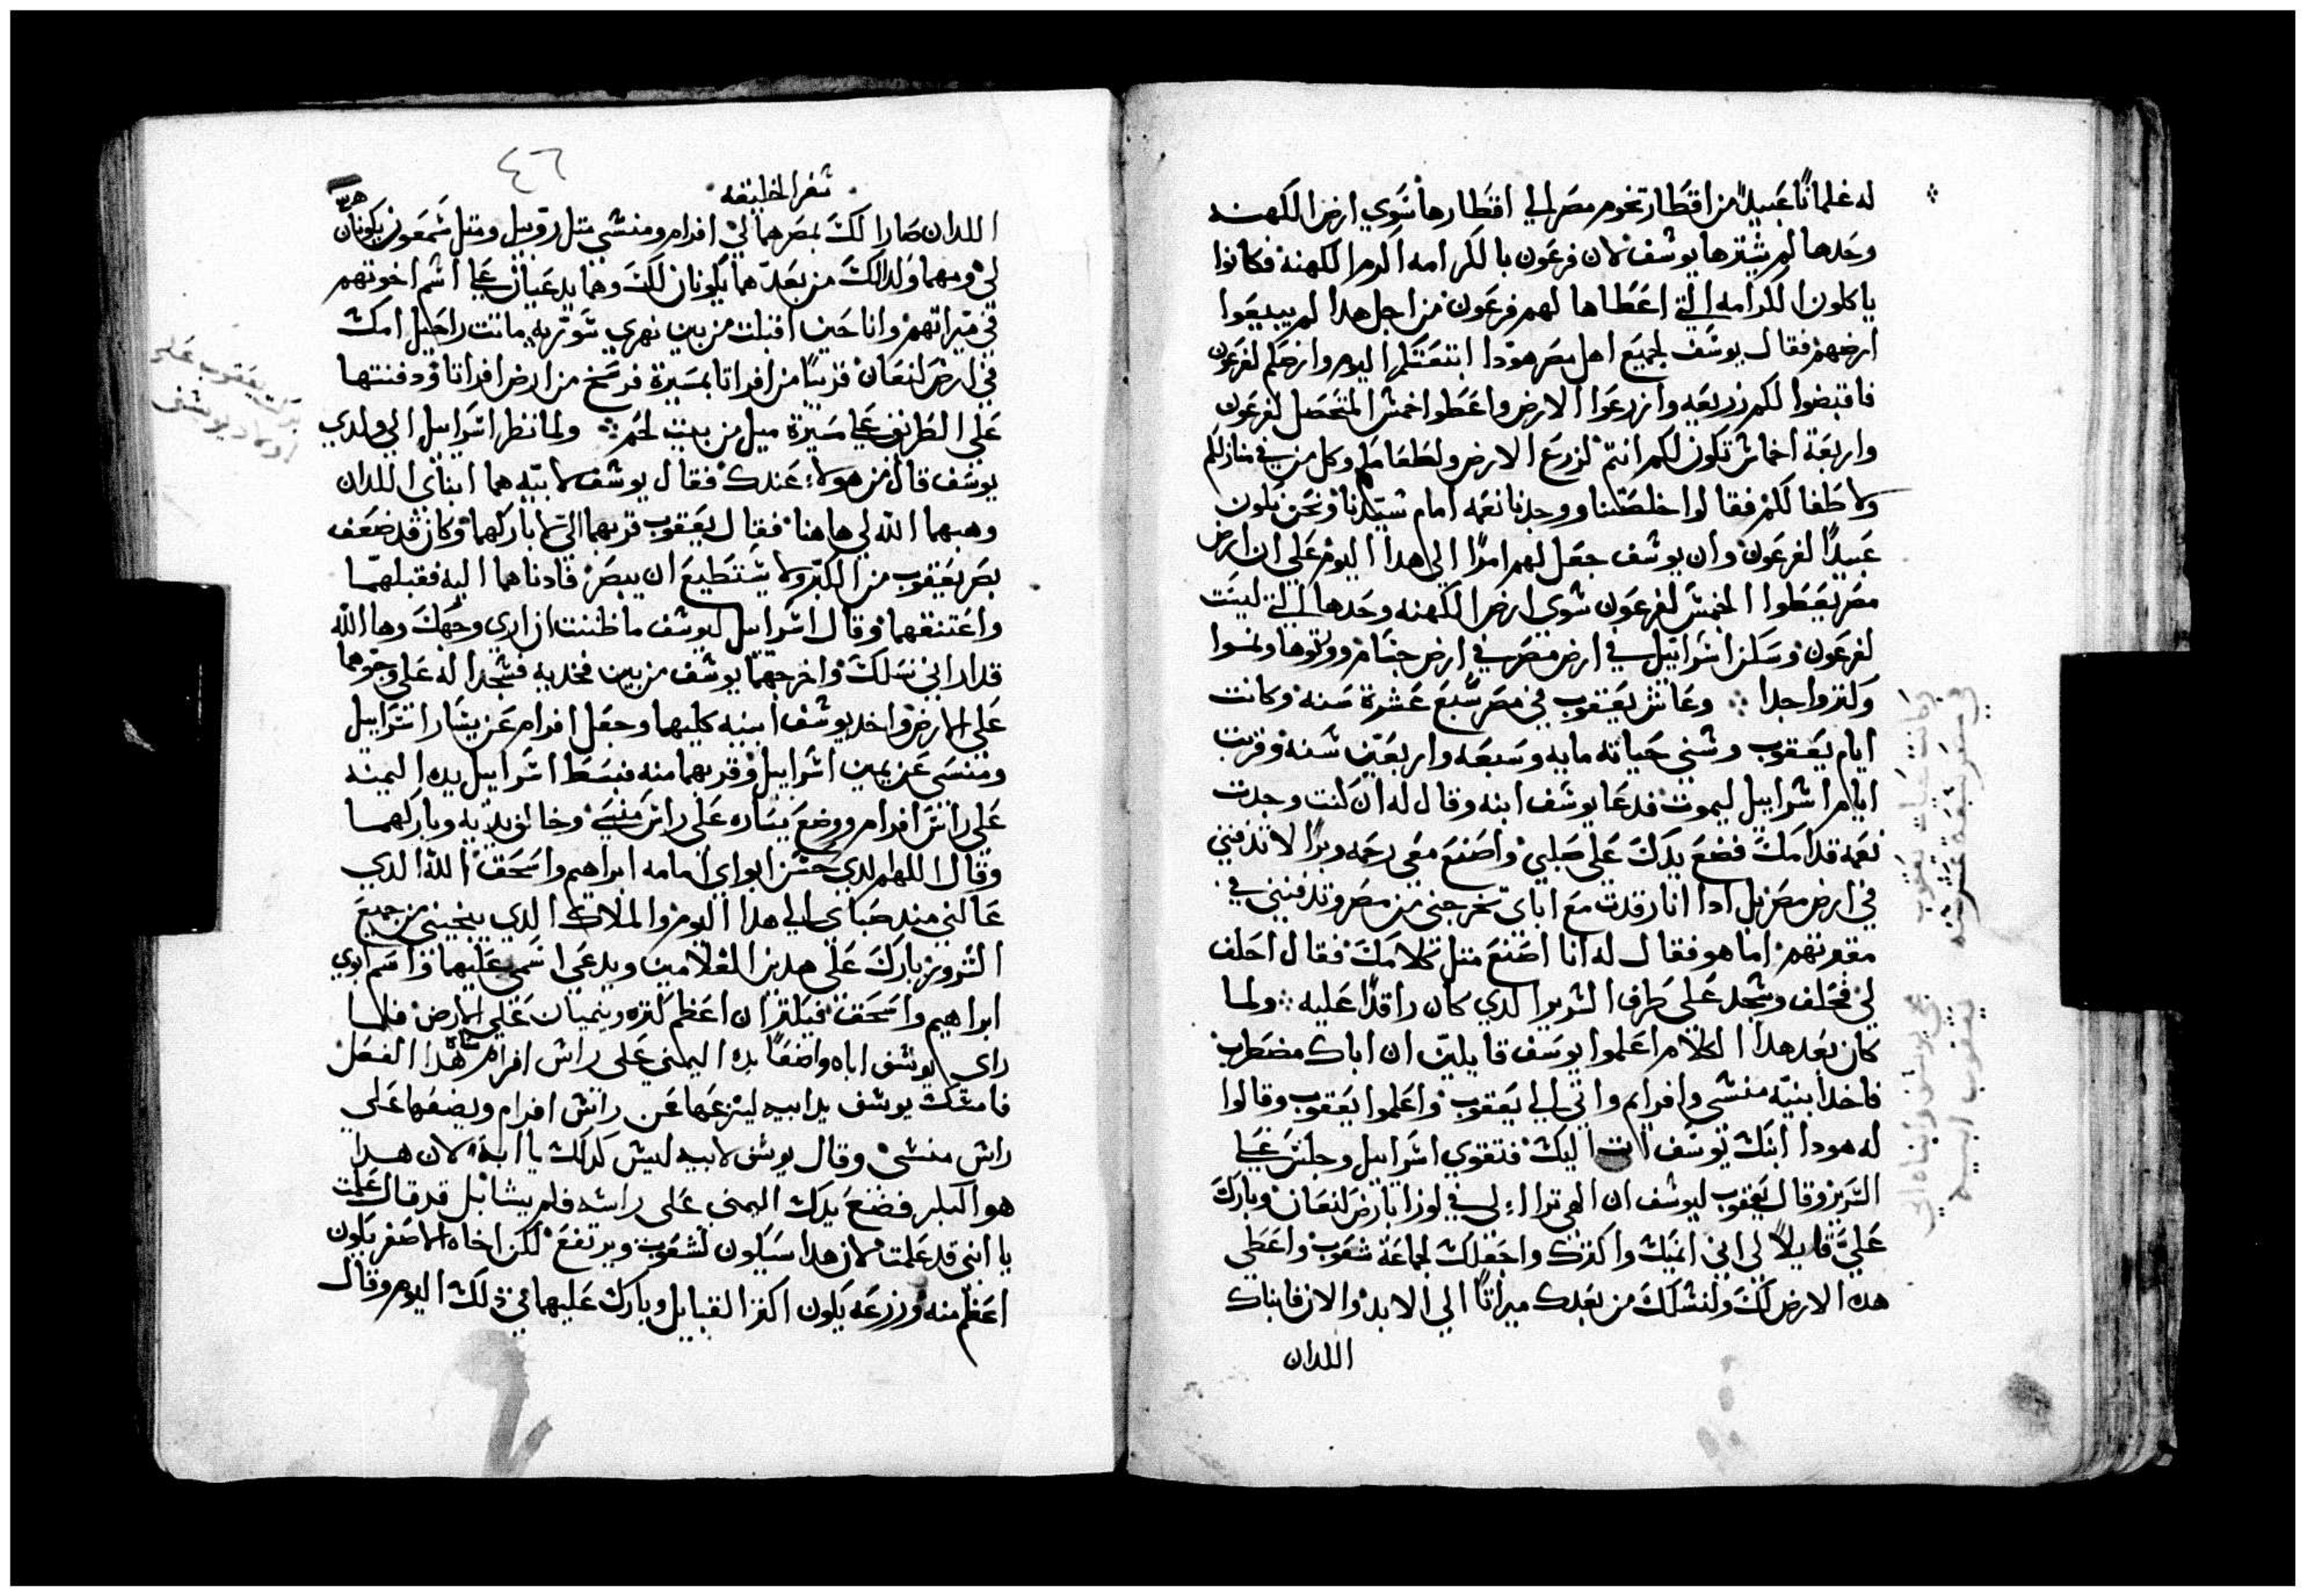 له غلمانًا عبيدًا من اقطار تخوم مصر الي اقطارها سوي ارض الكهنه
وحدها لم يشترها يوسف لان فرعون بالكرامه اكرم الكهنه فكانوا
ياكلون الكرامه التي اعطاها لهم فرعون من اجل هدا لم يبيعوا
ارضهم فقال يوسف لجميع اهل مصر هودا ابتعتكم اليوم وارضكم لفرعون
فاقبضوا لكم زريعه وازرعوا الارض واعطوا خمس المتحصل لفرعون
واربعة اخماس تكون لكم انتم لزرع الارض ولطعامكم وكل من في منازلكم
ولاطفالكم فقالوا خلصتنا ووجدنا نعمه امام سيدنا ونحن نكون
عبيدًا لفرعون وان يوسف جعل لهم امرًا الي هدا اليوم علي ان ارض
مصر يعطوا الخمس لفرعون سوي ارض الكهنه وحدها التي ليست
لفرعون وسكن اسراييل في ارض مصر في ارض جسام وورثوها ونموا
وكثروا جدا ⁘ وعاش يعقوب في مصر سبع عشرة سنه وكانت
ايام يعقوب وسني حياته مايه وسبعه واربعين سنه وقربت
ايام اسراييل ليموت فدعا يوسف ابنه وقال له ان كنت وجدت
نعمه قدامك فضع يدك علي صلبي واصنع معي رحمه وبرًا لا تدفنني
في ارض مصر بل ادا انا رقدت مع اباي تخرجني من مصر وتدفنني في
مقبرتهم اما هو فقال له انا اصنع متل كلامك فقال احلف
لي فحلف وسجد علي طرف السرير الدي كان راقدًا عليه ⁘ ولما
كان بعد هدا الكلام اعلموا يوسف قايلين ان اباك مضطرب
فاخد ابنيه منسي وافرام واتي الي يعقوب واعلموا يعقوب وقالوا
له هودا ابنك يوسف اتي اليك فتقوي اسراييل وجلس علي
السرير وقال يعقوب ليوسف ان الهي تراا لي في لوزا بارض كنعان وبارك
عليّ قايلاً لي اني انميك واكترك واجعلك لجماعة شعوب واعطي
هده الارض لك ولنسلك من بعدك ميراتًا الي الابد والان فابناك
اللدان
وكانت حياة يعقوب
في مصر سبعة عشر سنه
مجي يوسف وابناه الي
يعقوب ابيه
٤٦
سفر الخليقه
اللدان صارا لك بمصر هما لي افرام ومنسي متل روبيل ومتل شمعون يكونان
لي ومهما ولد لك من بعدهما يكونان لك وهما يدعيان علي اسم اخوتهم
في ميراتهم وانا حين اقبلت من بين نهري سوريه ماتت راحيل امك
في ارض كنعان قريبًا من افراتا بمسيرة فرسخ من ارض افراتا ودفنتها
علي الطريق علي مسيرة ميل من بيت لحم ⁘ ولما نظر اسراييل الي ولدي
يوسف قال من هولاء عندك فقال يوسف لابيه هما ابناي اللدان
وهبهما الله لي هاهنا فقال يعقوب قربهما اليّ اباركهما وكان قد ضعف
بصر يعقوب من الكبر ولا يستطيع ان يبصر فادناهما اليه فقبلهما
واعتنقهما وقال اسراييل ليوسف ما ظننت ان اري وجهك وها الله
قد اراني نسلك واخرجهما يوسف من بين فخديه فسجدا له علي وجوههما
علي الارض واخد يوسف ابنيه كليهما وجعل افرام عن يسار اسراييل
ومنسي عن يمين اسراييل وقربهما منه فبسط اسراييل يده اليمنه
علي راس افرام ووضع يساره علي راس منسي وخالف يديه وباركهما
وقال اللهم الدي حسن ابواي امامه ابراهيم واسحق الله الدي
عالني مند صباي الي هدا اليوم والملاك الدي ينجيني من جميع
الشرور يبارك علي هدين الغلامين ويدعي اسمي عليهما واسم ابوي
ابراهيم واسحق فيكتران اعظم كتره وينميان علي الارض فلما
راي يوسف اباه واضعًا يده اليمني علي راس افرام ساه هدا الفعل
فامسك يوسف يد ابيه لينزعها عن راس افرام ويضعها علي
راس منسي وقال يوسف لابيه ليس كدلك يا ابة لان هدا
هو البكر فضع يدك اليمني علي راسه فلم يشا بل قد قال علمت
يا ابني قد علمت لان هدا سيكون لشعوب ويرتفع لكن اخاه الاصغر يكون
اعظم منه وزرعه يكون اكتر القبايل وبارك عليهما في دلك اليوم وقال
بركة يعقوب علي
اولاد يوسف